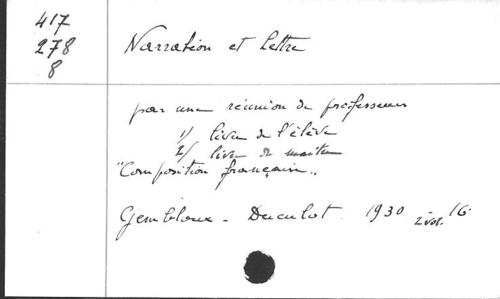 417
278
8
Narration et lettre
par une réunion de professeurs
1/ livre de l'élève
2/ livre du maître
"Composition française"
Gembloux - Duculot. 1930 2 vol. 16°